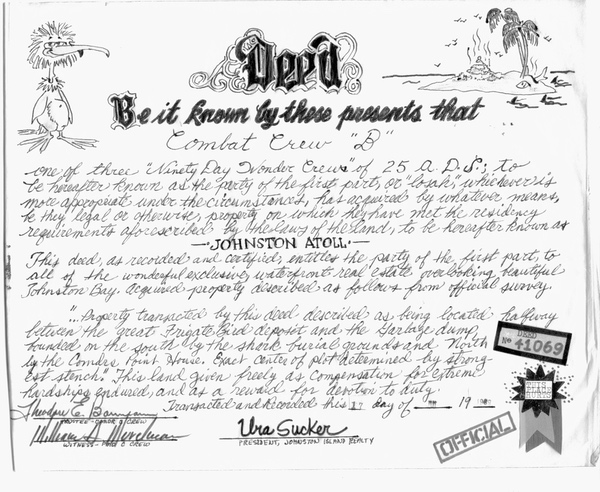 Deed
Be it known by these presents that
Combat Crew "B"
one of three "Ninety Day Wonder Crews" of 25 A.D.S.; to
be hereafter known as the party of the first part, or "losah", whichever is
more appropriate under the circumstances, has acquired by whatever means,
be they legal or otherwise, property on which they have met the residency
requirements aforescribed by the laws of the land, to be hereafter known as
—"JOHNSTON ATOLL"—
This deed, as recorded and certified, entitles the party of the first part, to
all of the wonderful exclusive waterfront real estate overlooking beautiful
Johnston Bay. Acquired property described as follows from official survey.
"...Property transacted by this deed described as being located halfway
between the great Frigate Bird deposit and the Garbage dump,
bounded on the south by the shark burial grounds and North
by the Comdrs. Point House. Exact center of plot determined by strong-
est stench." This land given freely as compensation for extreme
hardships endured, and as a reward for devotion to duty.
Transacted and Recorded this 17 day of 19
Theodore C.
CREW
William
WITNESS - CREW
Ura Sucker
PRESIDENT, JOHNSTON ISLAND REALTY
DEED
No 41069
OFFICIAL